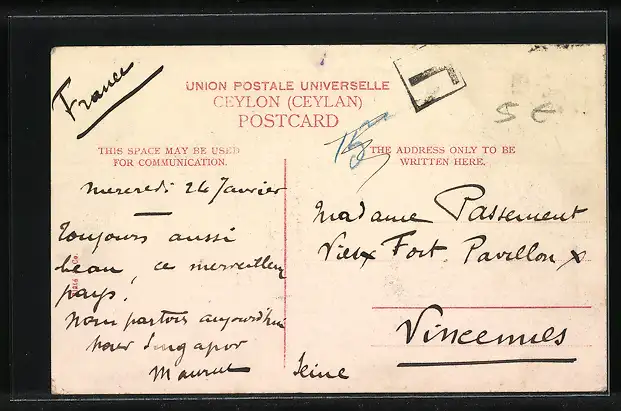 France
UNION POSTALE UNIVERSELLE
CEYLON (CEYLAN)
POSTCARD
THIS SPACE MAY BE USED
FOR COMMUNICATION.
THE ADDRESS ONLY TO BE
WRITTEN HERE.
Mercredi 24 Janvier
Toujours aussi
beau, ce merveilleux
pays,
Nous partons aujourd'hui
pour Singapor
Madame Passement
Vieux Fort. Pavillon X
Vincennes
Seine